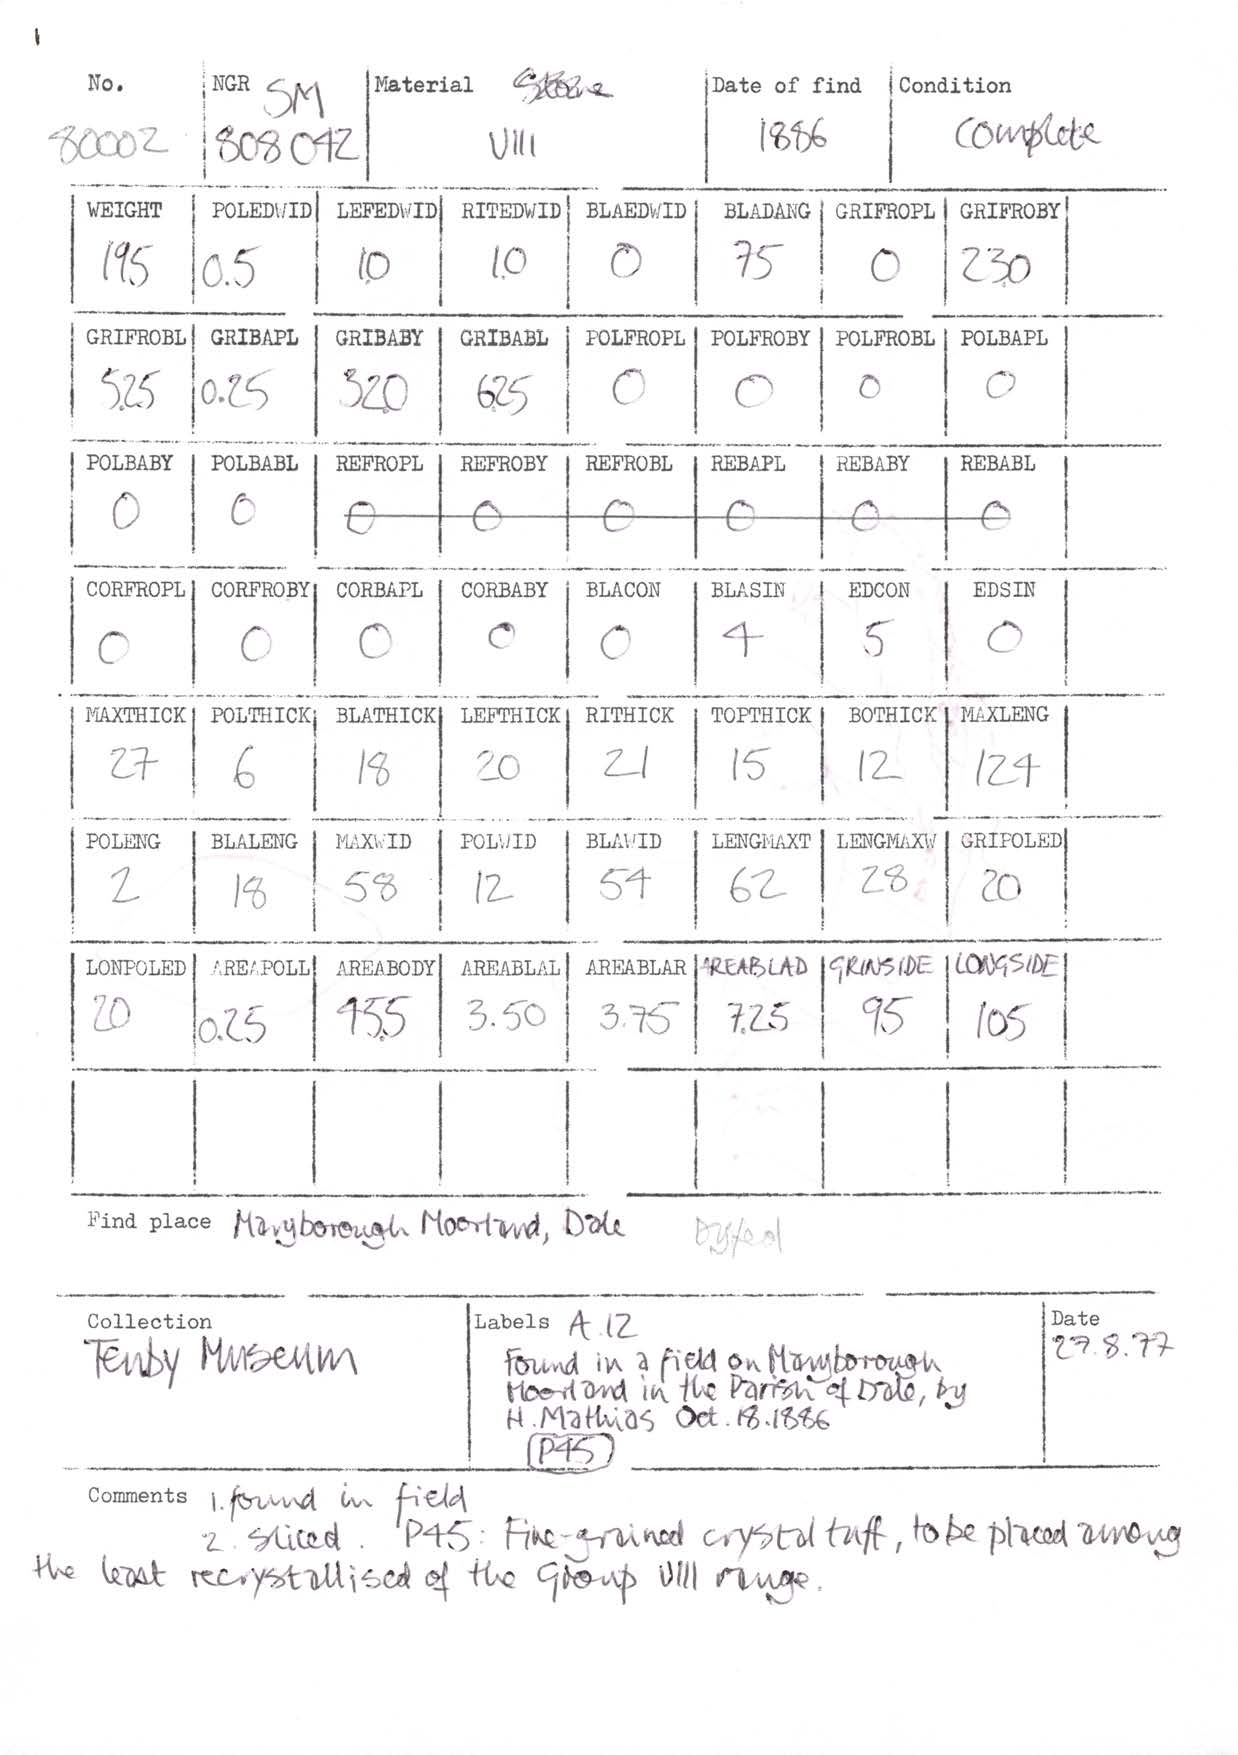 1
No. NGR SM Material Date of find Condition
80002 808042 VIII 1886 Complete
WEIGHT POLEDWID LEFEDWID RITEDWID BLAEDWID BLADANG GRIFROPL GRIFROBY
195 0.5 1.0 1.0 0 75 0 23.0
GRIFROBL GRIBAPL GRIBABY GRIBABL POLFROPL POLFROBY POLFROBL POLBAPL
5.25 0.25 32.0 6.25 0 0 0 0
POLBABY POLBABL REFROPL REFROBY REFROBL REBAPL REBABY REBABL
0 0 0 0 0 0 0 0
CORFROPL CORFROBY CORBAPL CORBABY BLACON BLASIN EDCON EDSIN
0 0 0 0 0 4 5 0
MAXTHICK POLTHICK BLATHICK LEFTHICK RITHICK TOPTHICK BOTHICK MAXLENG
27 6 18 20 21 15 12 124
POLENG BLALENG MAXWID POLWID BLAWID LENGMAXT LENGMAXW GRIPOLED
2 18 58 12 54 62 28 20
LONPOLED AREAPOLL AREABODY AREABLAL AREABLAR AREABLAD GRINSIDE LONGSIDE
20 0.25 45.5 3.50 3.75 7.25 95 105
Find place Maryborough Moorland, Dale Dyfed
Collection Labels A.12 Date
Tenby Museum 27.8.77
Found in a field on Maryborough
Moorland in the Parish of Dale, by
H. Mathias Oct. 18. 1886
P45
Comments 1. found in field
2. sliced. P45: Fine-grained crystal tuff, to be placed among
the least recrystallised of the Group VIII range.